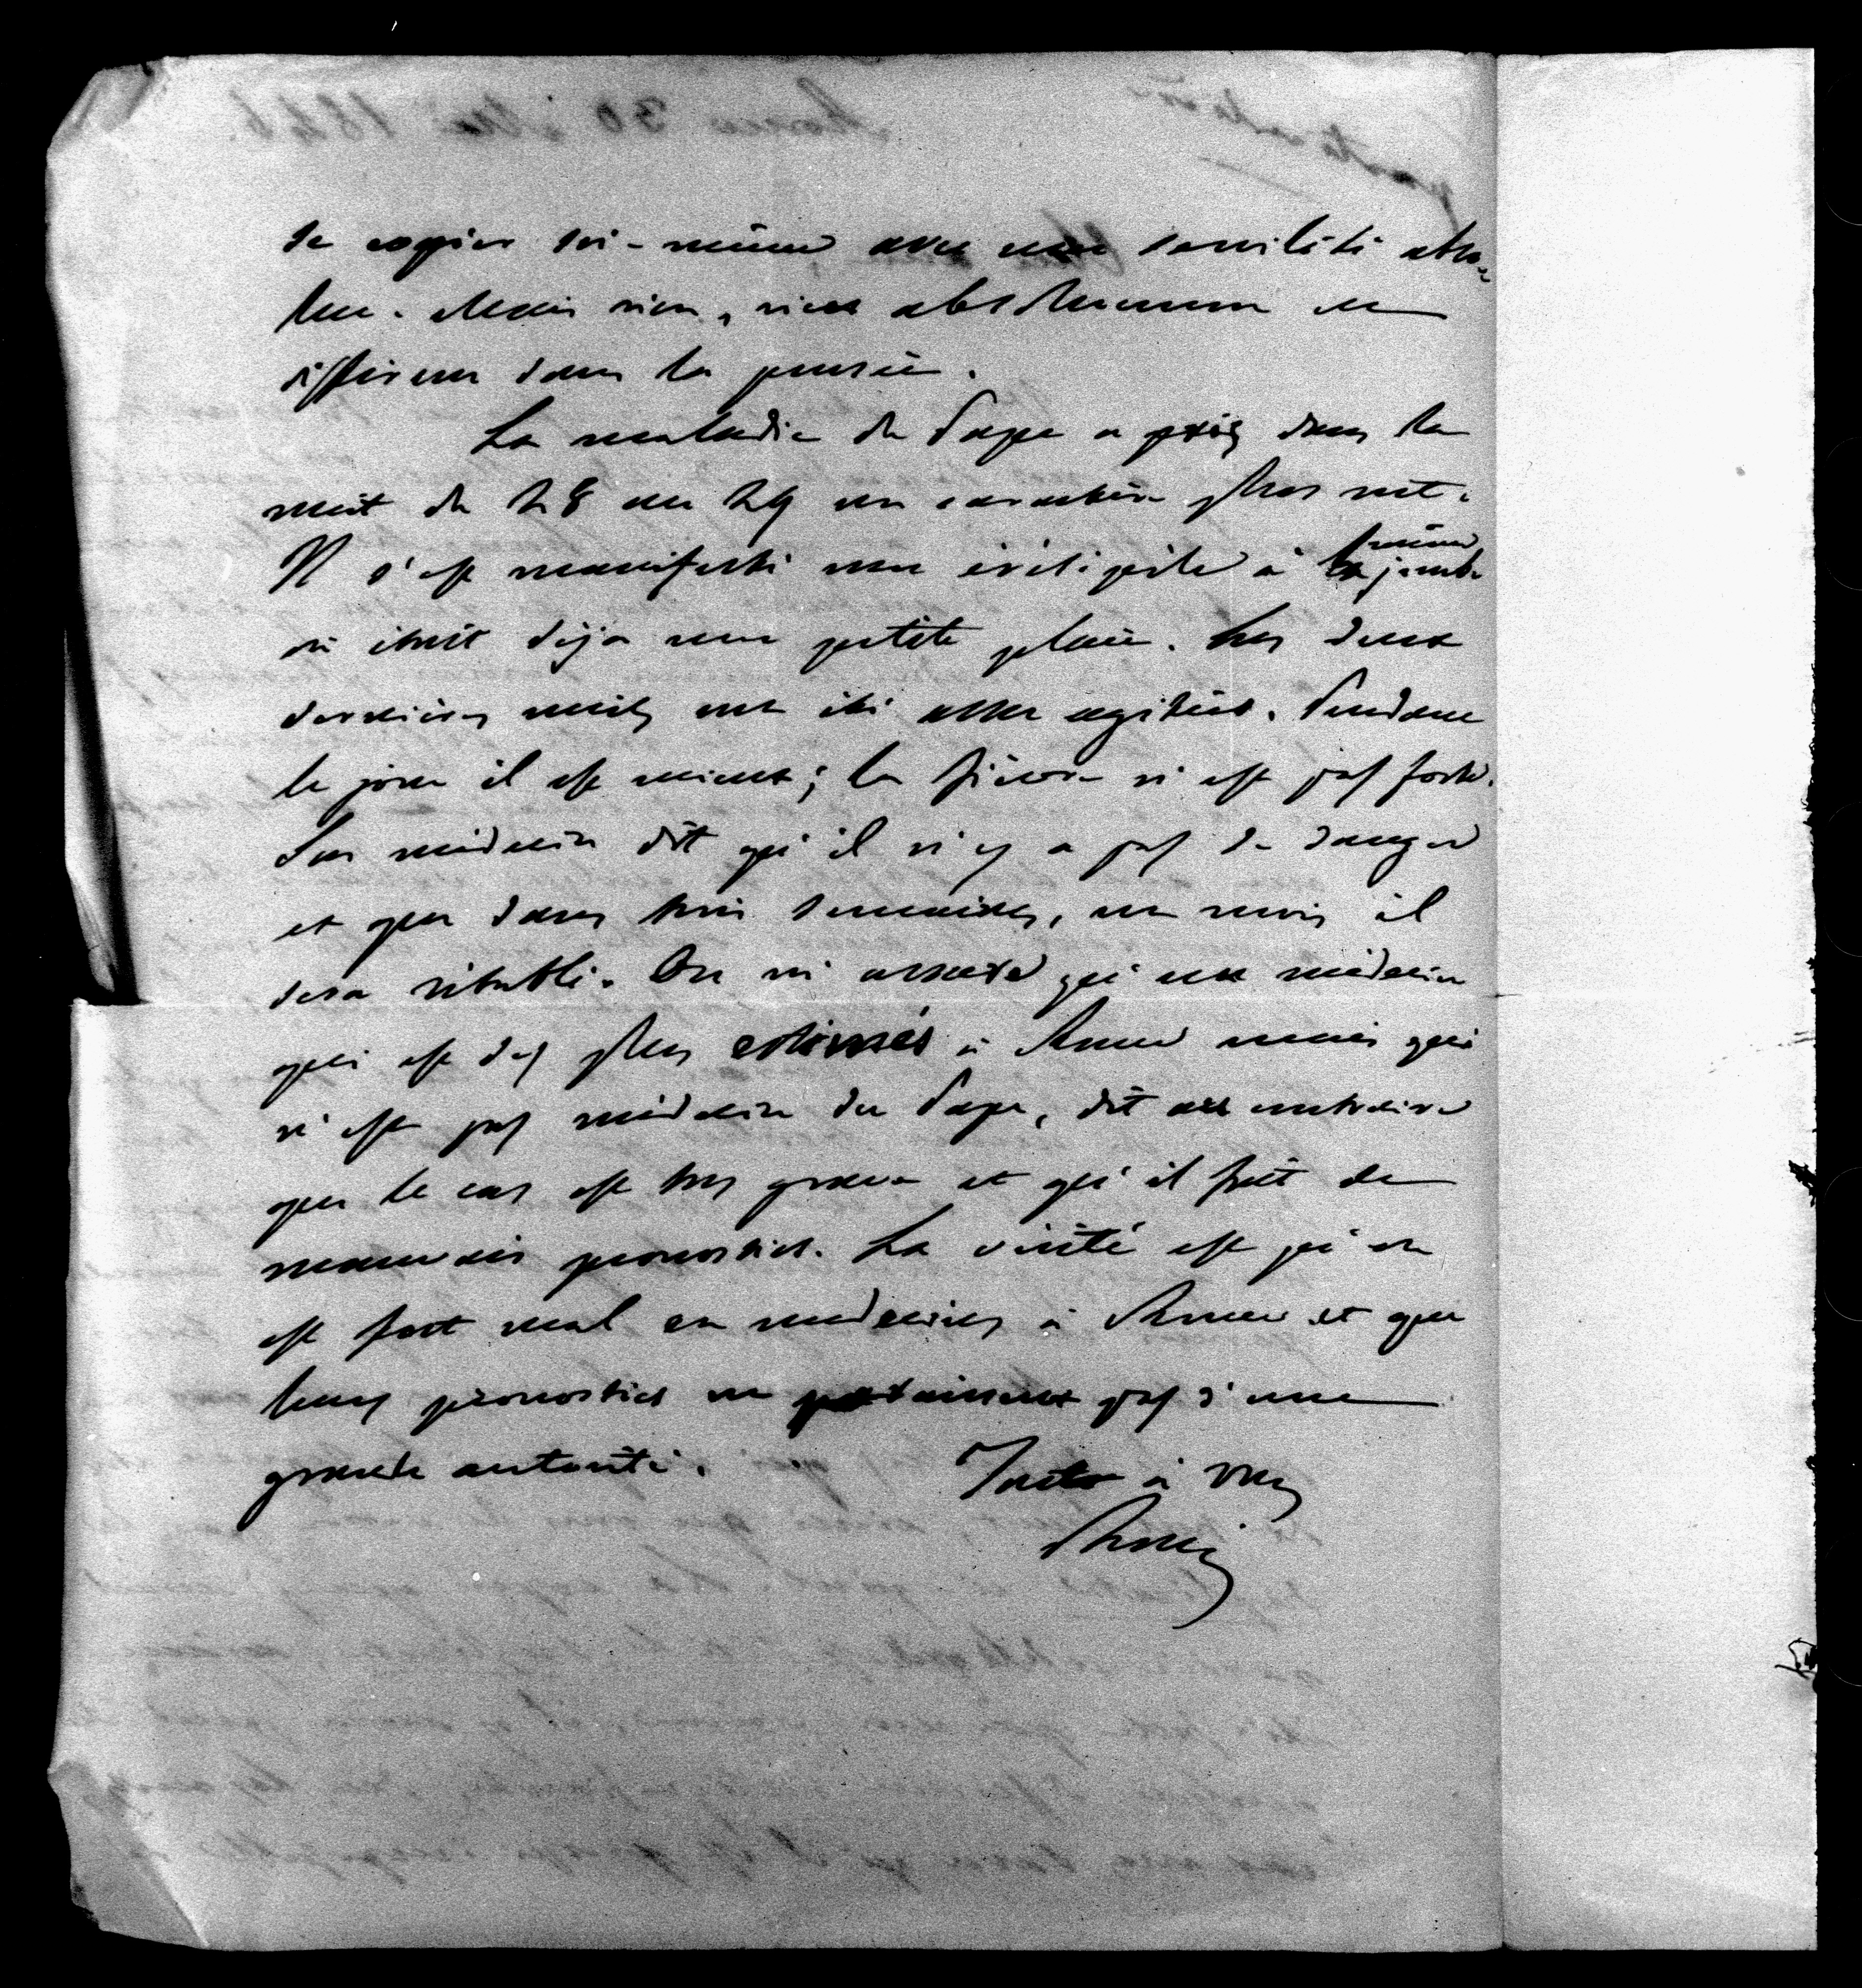 de copier soi-même avec une servilité abso-
lue. Mais rien, rien absolument de
différent dans la pensée.
La maladie du Pape a pris dans la
nuit du 28 au 29 un caractère plus net.
Il s'est manifesté un érésipèle à la même jambe
où était déjà une petite plaie. Les deux
dernières nuits ont été assez agitées. Pendant
le jour il est mieux; la fièvre n'est pas forte.
Son médecin dit qu'il n'y a pas de danger
et que dans trois semaines, un mois il
sera rétabli. On m'assure qu'un médecin
qui est des plus estimés à Rome mais qui
n'est pas médecin du Pape, dit au contraire
que le cas est très grave et qu'il fait de
mauvais pronostics. La vérité est qu'on
est fort mal en médecins à Rome et que
leurs pronostics ne jouissent pas d'une
grande autorité. Tout à vous
Rossi